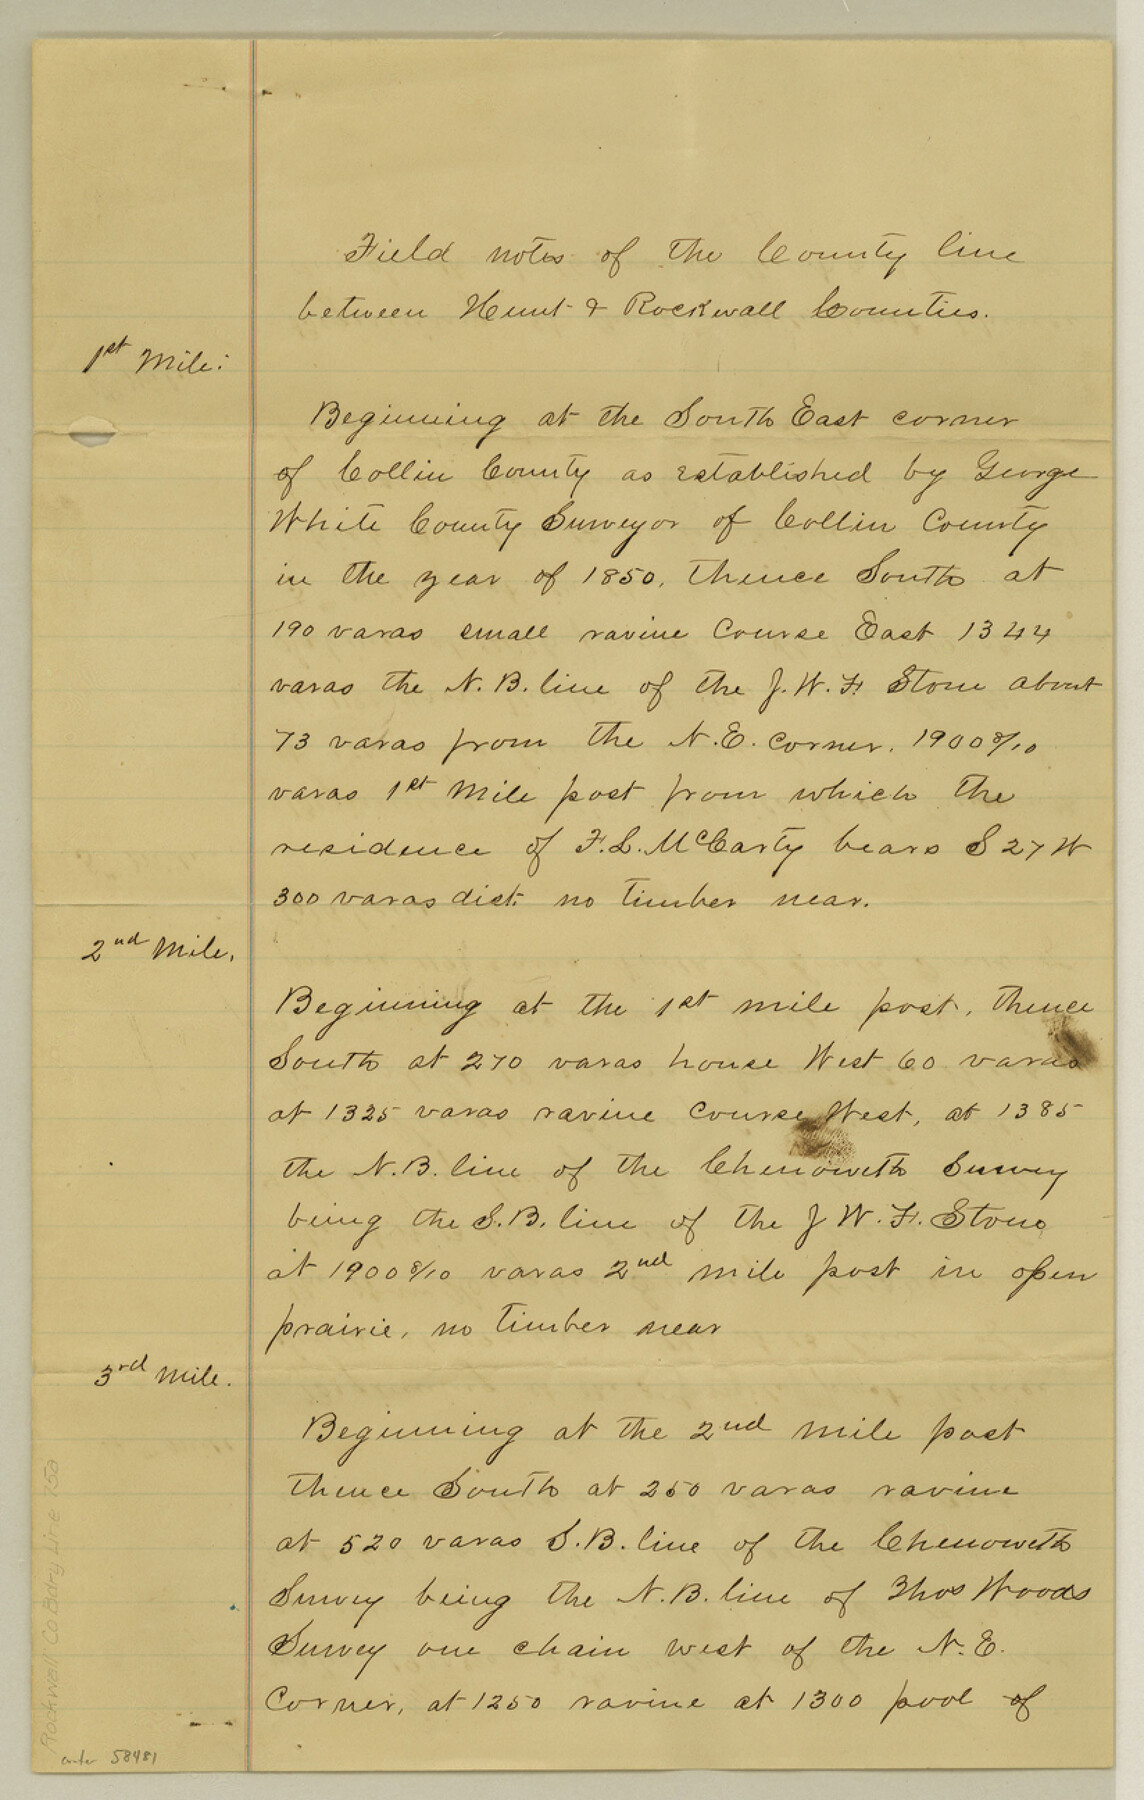 Field notes of the County line
between Hunt & Rockwall Counties.
1st Mile:
Beginning at the South East corner
of Collin County as established by George
White County Surveyor of Collin County
in the year of 1850, thence South at
190 varas small ravine Course East 1344
varas the N.B. line of the J.W.F. Stone about
73 varas from the N.E. corner. 1900 8/10
varas 1st Mile post from which the
residence of F.L. McCarty bears S 27 W
300 varas dist. no timber near.
2nd Mile.
Beginning at the 1st mile post, thence
South at 270 varas house West 60 varas
at 1325 varas ravine Course West, at 1385
the N.B. line of the Chenoweth Survey
being the S.B. line of the J W. F. Stone
at 1900 8/10 varas 2nd mile post in open
prairie, no timber near
3rd Mile.
Beginning at the 2nd mile post
thence South at 250 varas ravine
at 520 varas S.B. line of the Chenoweth
Survey being the N.B. line of Thos Woods
Survey one chain west of the N.E.
Corner, at 1250 ravine at 1300 pool of
Rockwall Co. Bdry Line 75a
counter 58481